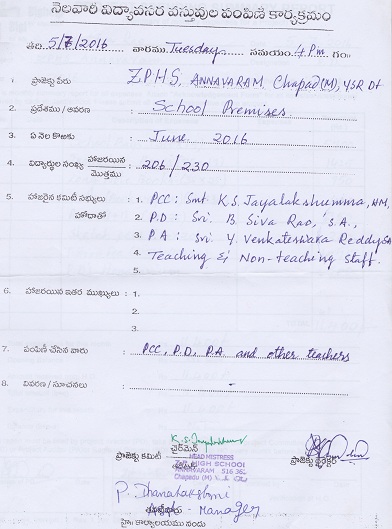 నెలవారీ విద్యావసర వస్తువుల పంపిణీ కార్యక్రమం
తేది. 5/7/2016 వారము Tuesday సమయం. 4 P.m. గం॥
1. ప్రాజెక్టు పేరు ZPHS, ANNAVARAM. Chapad(M), YSR Dt
2. ప్రదేశము / ఆవరణ : School Premises.
3. ఏ నెల కొఱకు : June 2016
4. విద్యార్థుల సంఖ్య హాజరయిన / మొత్తము : 206/230
5. హాజరైన కమిటీ సభ్యులు : 1. PCC: Smt K.S. Jayalakshumma, HM,
హోదాతో 2. P.D : Sri. B. Siva Rao, S.A.,
3. P A : Sri Y. Venkateswara Reddy SA
4. Teaching & Non-teaching staff.
5.
6. హాజరయిన ఇతర ముఖ్యులు : 1.
2.
3.
7. పంపిణీ చేసిన వారు : PCC, P.D, P.A. and other teachers
8. వివరణ / సూచనలు : -
K.S. Jayalakshumma
ప్రాజెక్టు కమిటీ చైర్‌మెన్ ప్రాజెక్టు డైరెక్టర్
HEAD MISTRESS
HIGH SCHOOL
ANNAVARAM 516 36
Chapadu (M)
P. Dhanalakshmi
Manager
హైః కార్యాలయము నందు